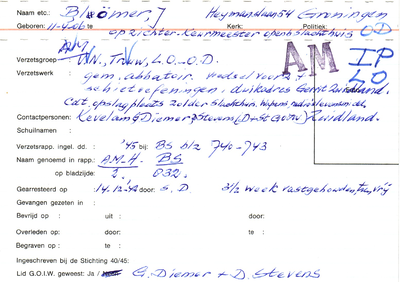 Naam etc.: Blömer, J Heymanslaan 54 Groningen
Geboren: 11-4-06 te Kerk: Politiek: OD
opzichter-keurmeester openb. slachthuis
A.M.
AM
IP
LO
Verzetsgroep : VN., Tr., L.O.-O.D.
Verzetswerk : gem. abbatoir
schietoefeningen. duikadres Gerrit Zuidland.
opslagplaats zolder slachthuis. Wapens
Contactpersonen: Kevelam, G Diemer, Steam (D+St GOIW) Zuidland.
Schuilnaam :
Verzetsrapp. ingel. dd. : '45 bij: BS blz 740-743
Naam genoemd in rapp.: A.M.H. BS
op bladzijde: 2. 032.
Gearresteerd op : 14.12.42 door: S.D 3½ week vastgehouden, vrij
Gevangen gezeten in :
Bevrijd op : uit : door:
Overleden op: door: te :
Begraven op : te :
Ingeschreven bij de Stichting 40/45:
Lid G.O.I.W. geweest: Ja / G. Diemer + D. Stevens